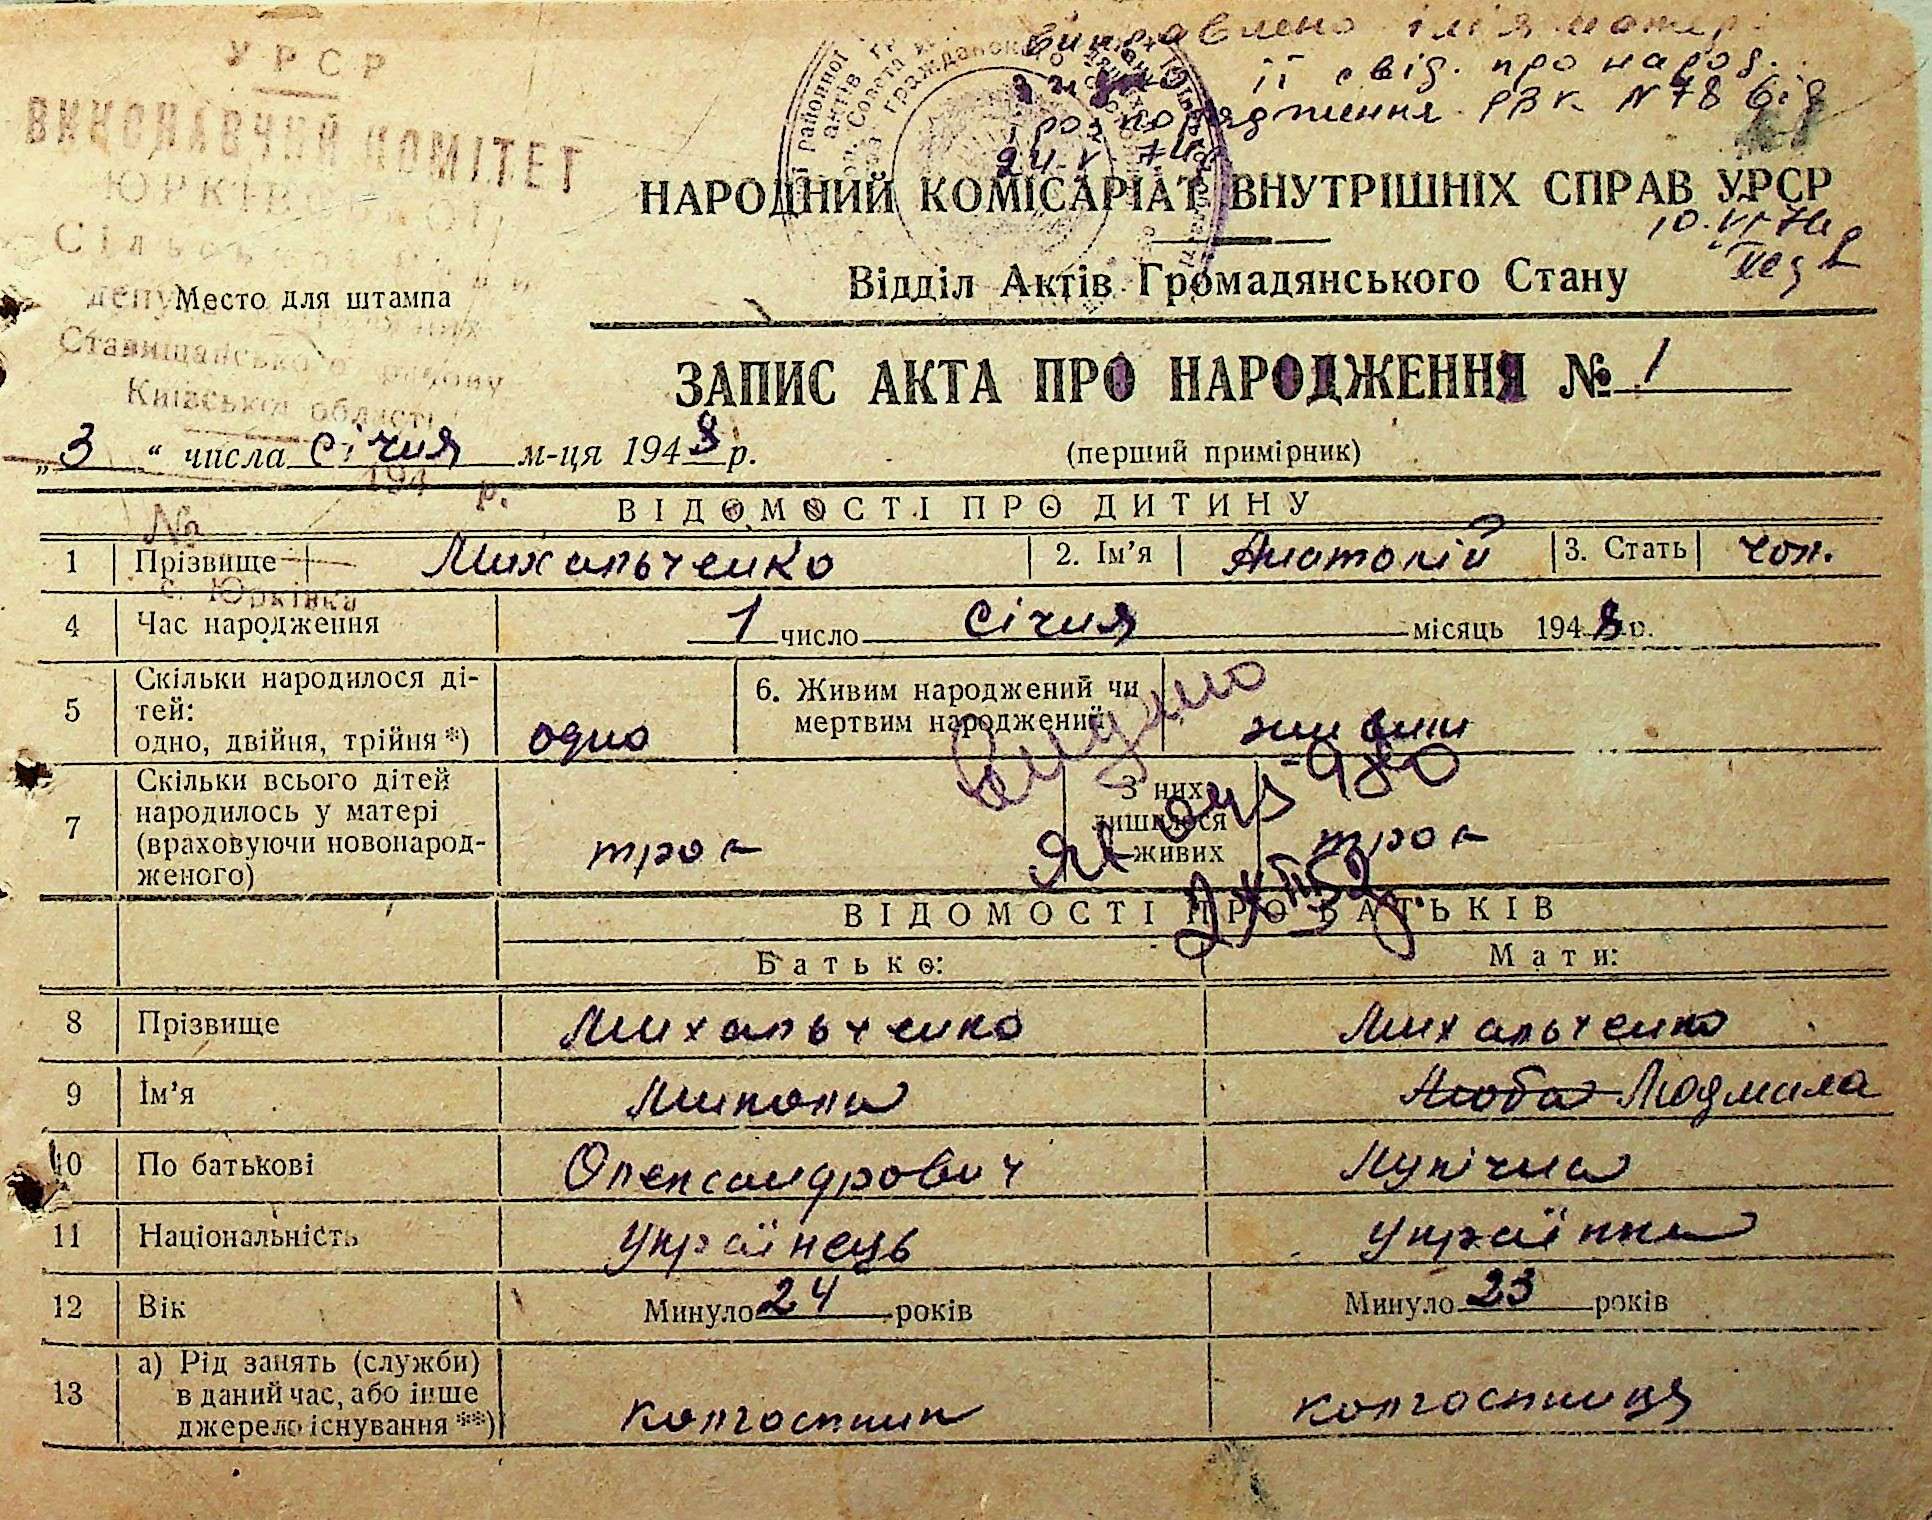 УРСР
ВИКОНАВЧИЙ КОМІТЕТ
Сільсько
депу
Ставищанського району
Київської області
194 р.
№
с. Юрківка
Место для штампа
виправлено ім'я матері
її свід. про народ.
розпорядження РВК N 78 від
24.V.74
10.VI 74
НАРОДНИЙ КОМІСАРІАТ ВНУТРІШНІХ СПРАВ УРСР
Відділ Актів Громадянського Стану
ЗАПИС АКТА ПРО НАРОДЖЕННЯ № 1
„3“ числа січня м-ця 1948 р.
(перший примірник)
ВІДОМОСТІ ПРО ДИТИНУ
1 Прізвище Михальченко 2. Ім'я Анатолій 3. Стать чол.
4 Час народження 1 число Січня місяць 1948 р.
5 Скільки народилося ді-
тей:
одно, двійня, трійня *) одно
6. Живим народжений чи
мертвим народжений живим
7 Скільки всього дітей
народилось у матері
(враховуючи новонарод-
женого) троє
З них
лишилося
живих троє
Видано
980
ВІДОМОСТІ ПРО БАТЬКІВ
Батько: Мати:
8 Прізвище Михальченко Михальченко
9 Ім'я Микола Люба Людмила
10 По батькові Олександрович Лукічна
11 Національність Українець Українка
12 Вік Минуло 24 років Минуло 23 років
13 а) Рід занять (служби)
в даний час, або інше
джерело існування **) колгоспник колгоспниця